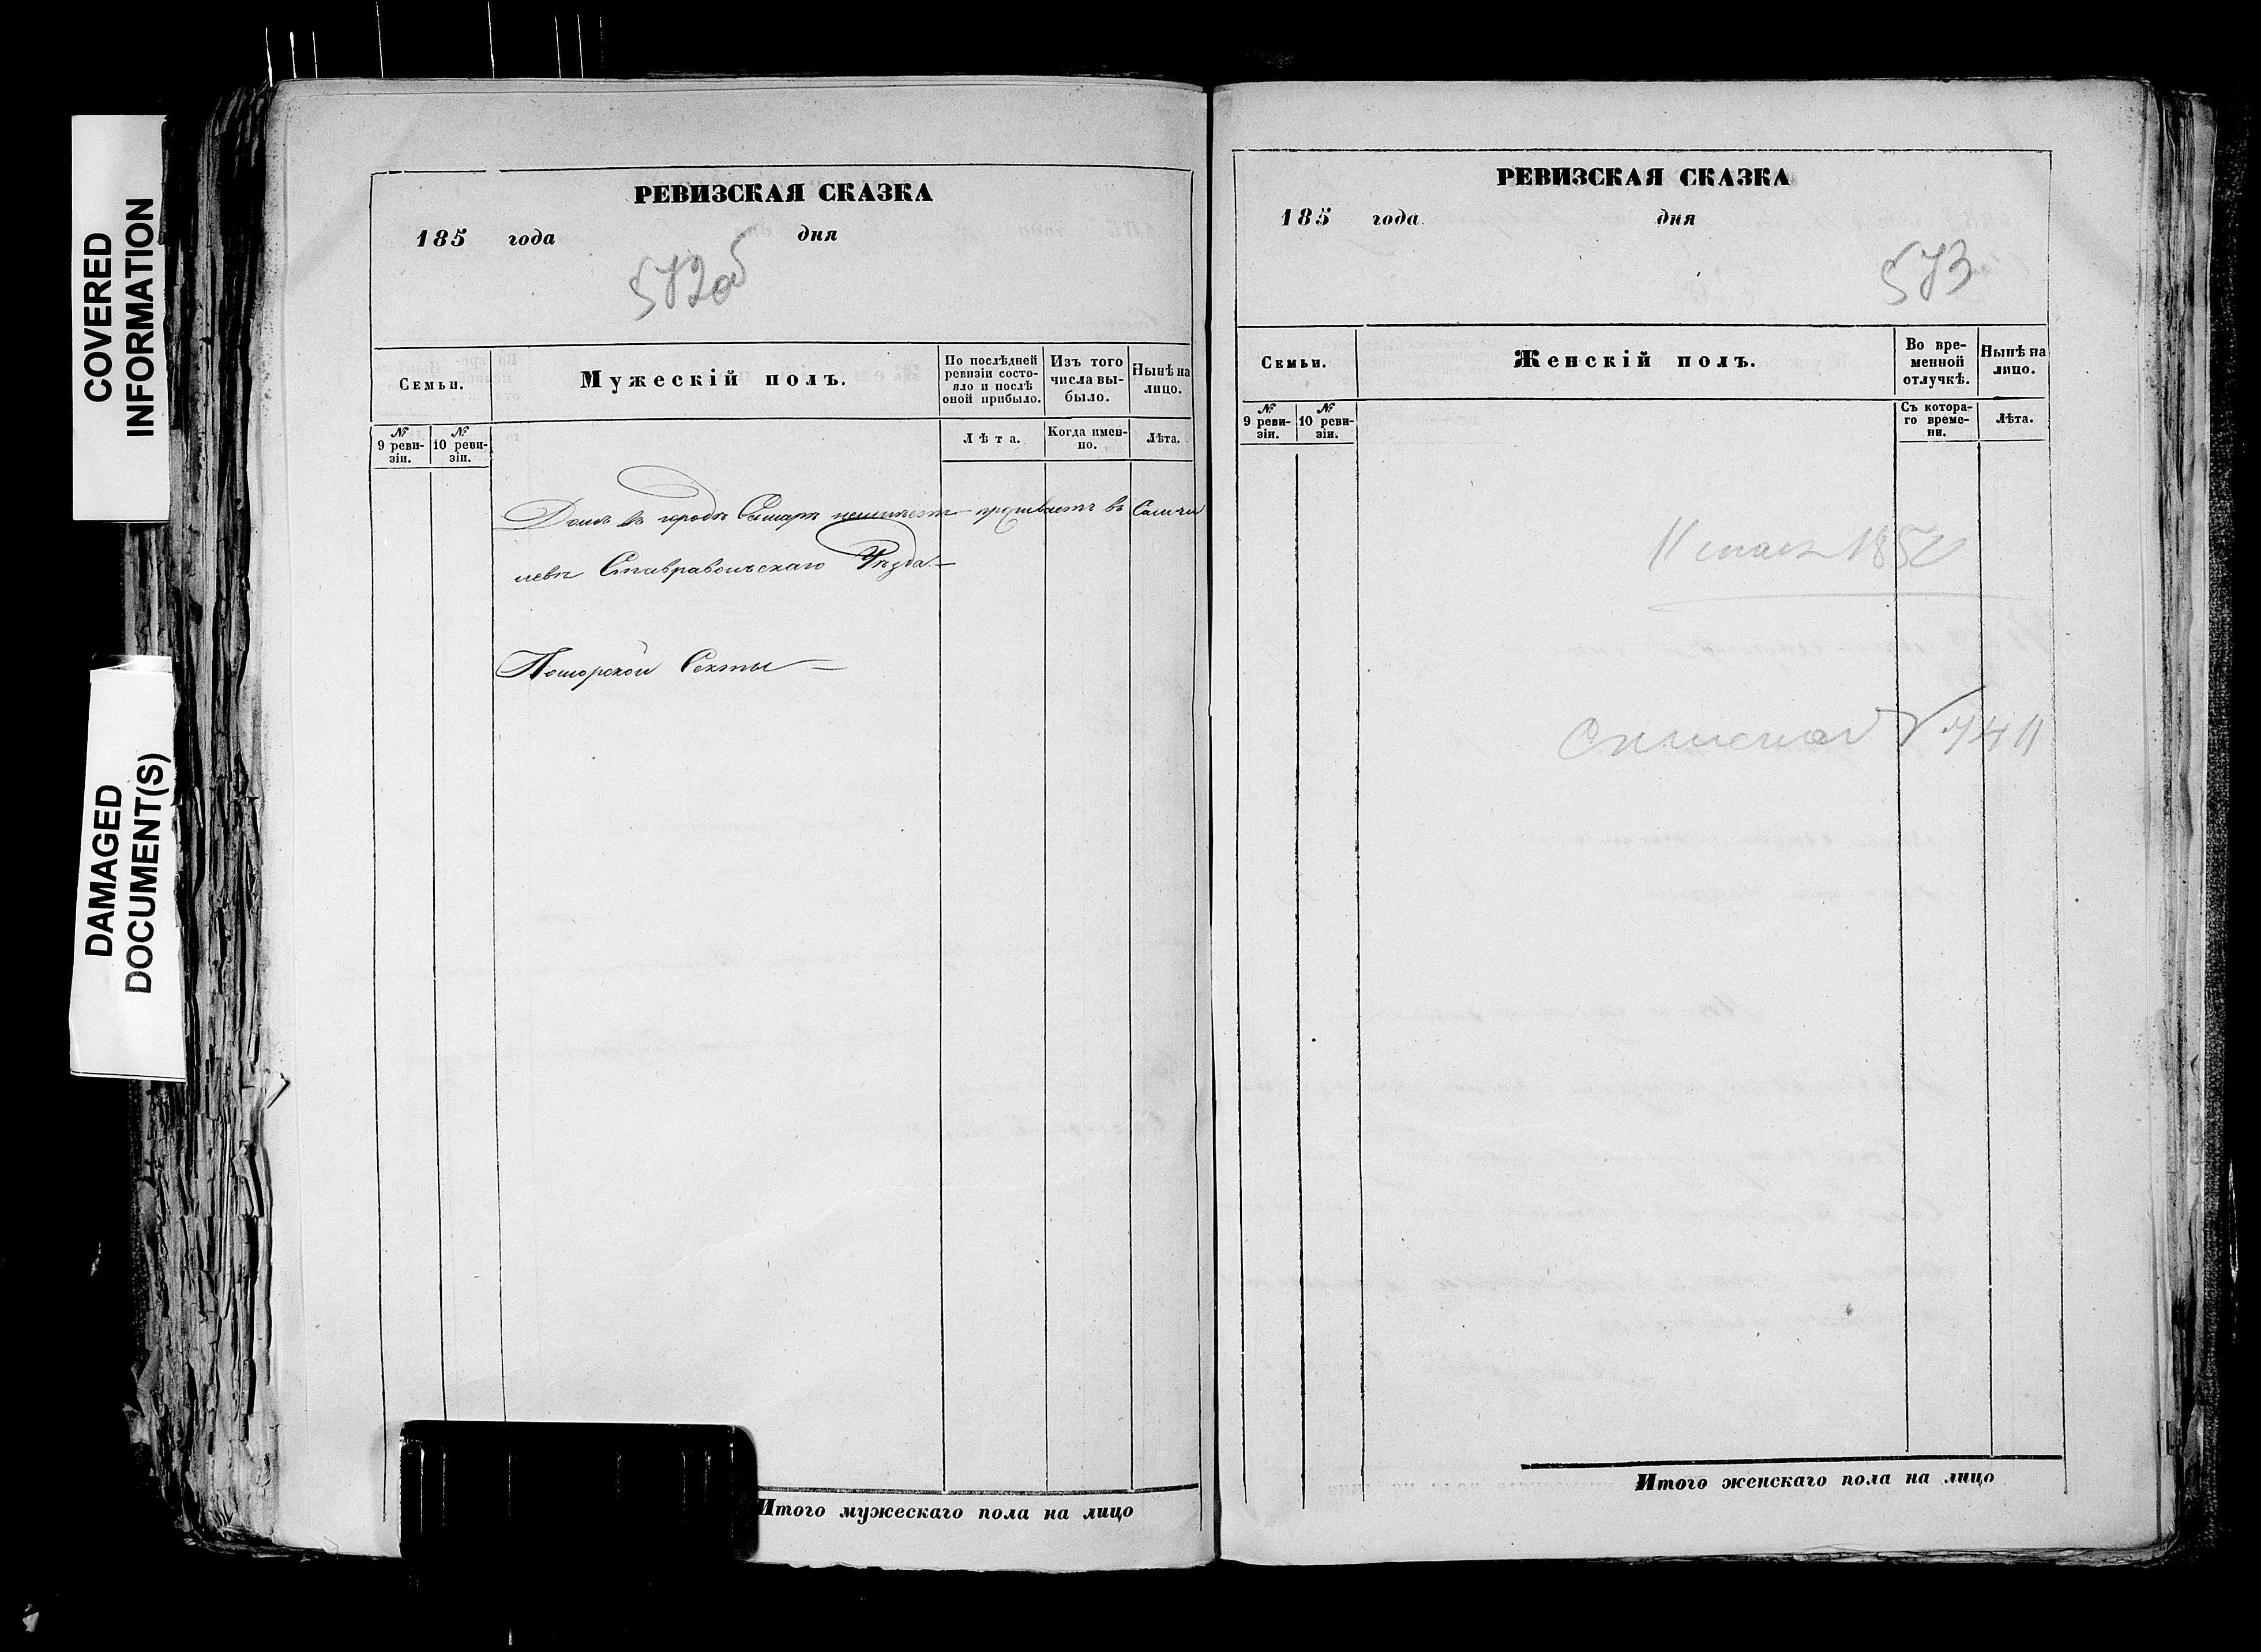 COVERED
INFORMATION
DAMAGED
DOCUMENT(S)
РЕВИЗСКАЯ СКАЗКА
185 года дня
572об
Семьи.
Мужескій полъ.
По послѣдней
ревизіи состо-
яло и послѣ
оной прибыло.
Изъ того
числа вы-
было.
Нынѣ на
лицо.
№
9 реви-
зіи.
№
10 реви-
зіи.
Лѣта.
Когда имен-
но.
Лѣта.
Домъ въ городѣ Самарѣ неимѣетъ проживаетъ въ
Ставравольскаго Уѣзда.
Поморской Секты
Итого мужескаго пола на лицо
РЕВИЗСКАЯ СКАЗКА
185 года дня
573
Семьи.
Женскій полъ.
Во вре-
менной
отлучкѣ.
Нынѣ на
лицо.
№
9 реви-
зіи.
№
10 реви-
зіи.
Съ котора-
го време-
ни.
Лѣта.
11
Итого женскаго пола на лицо